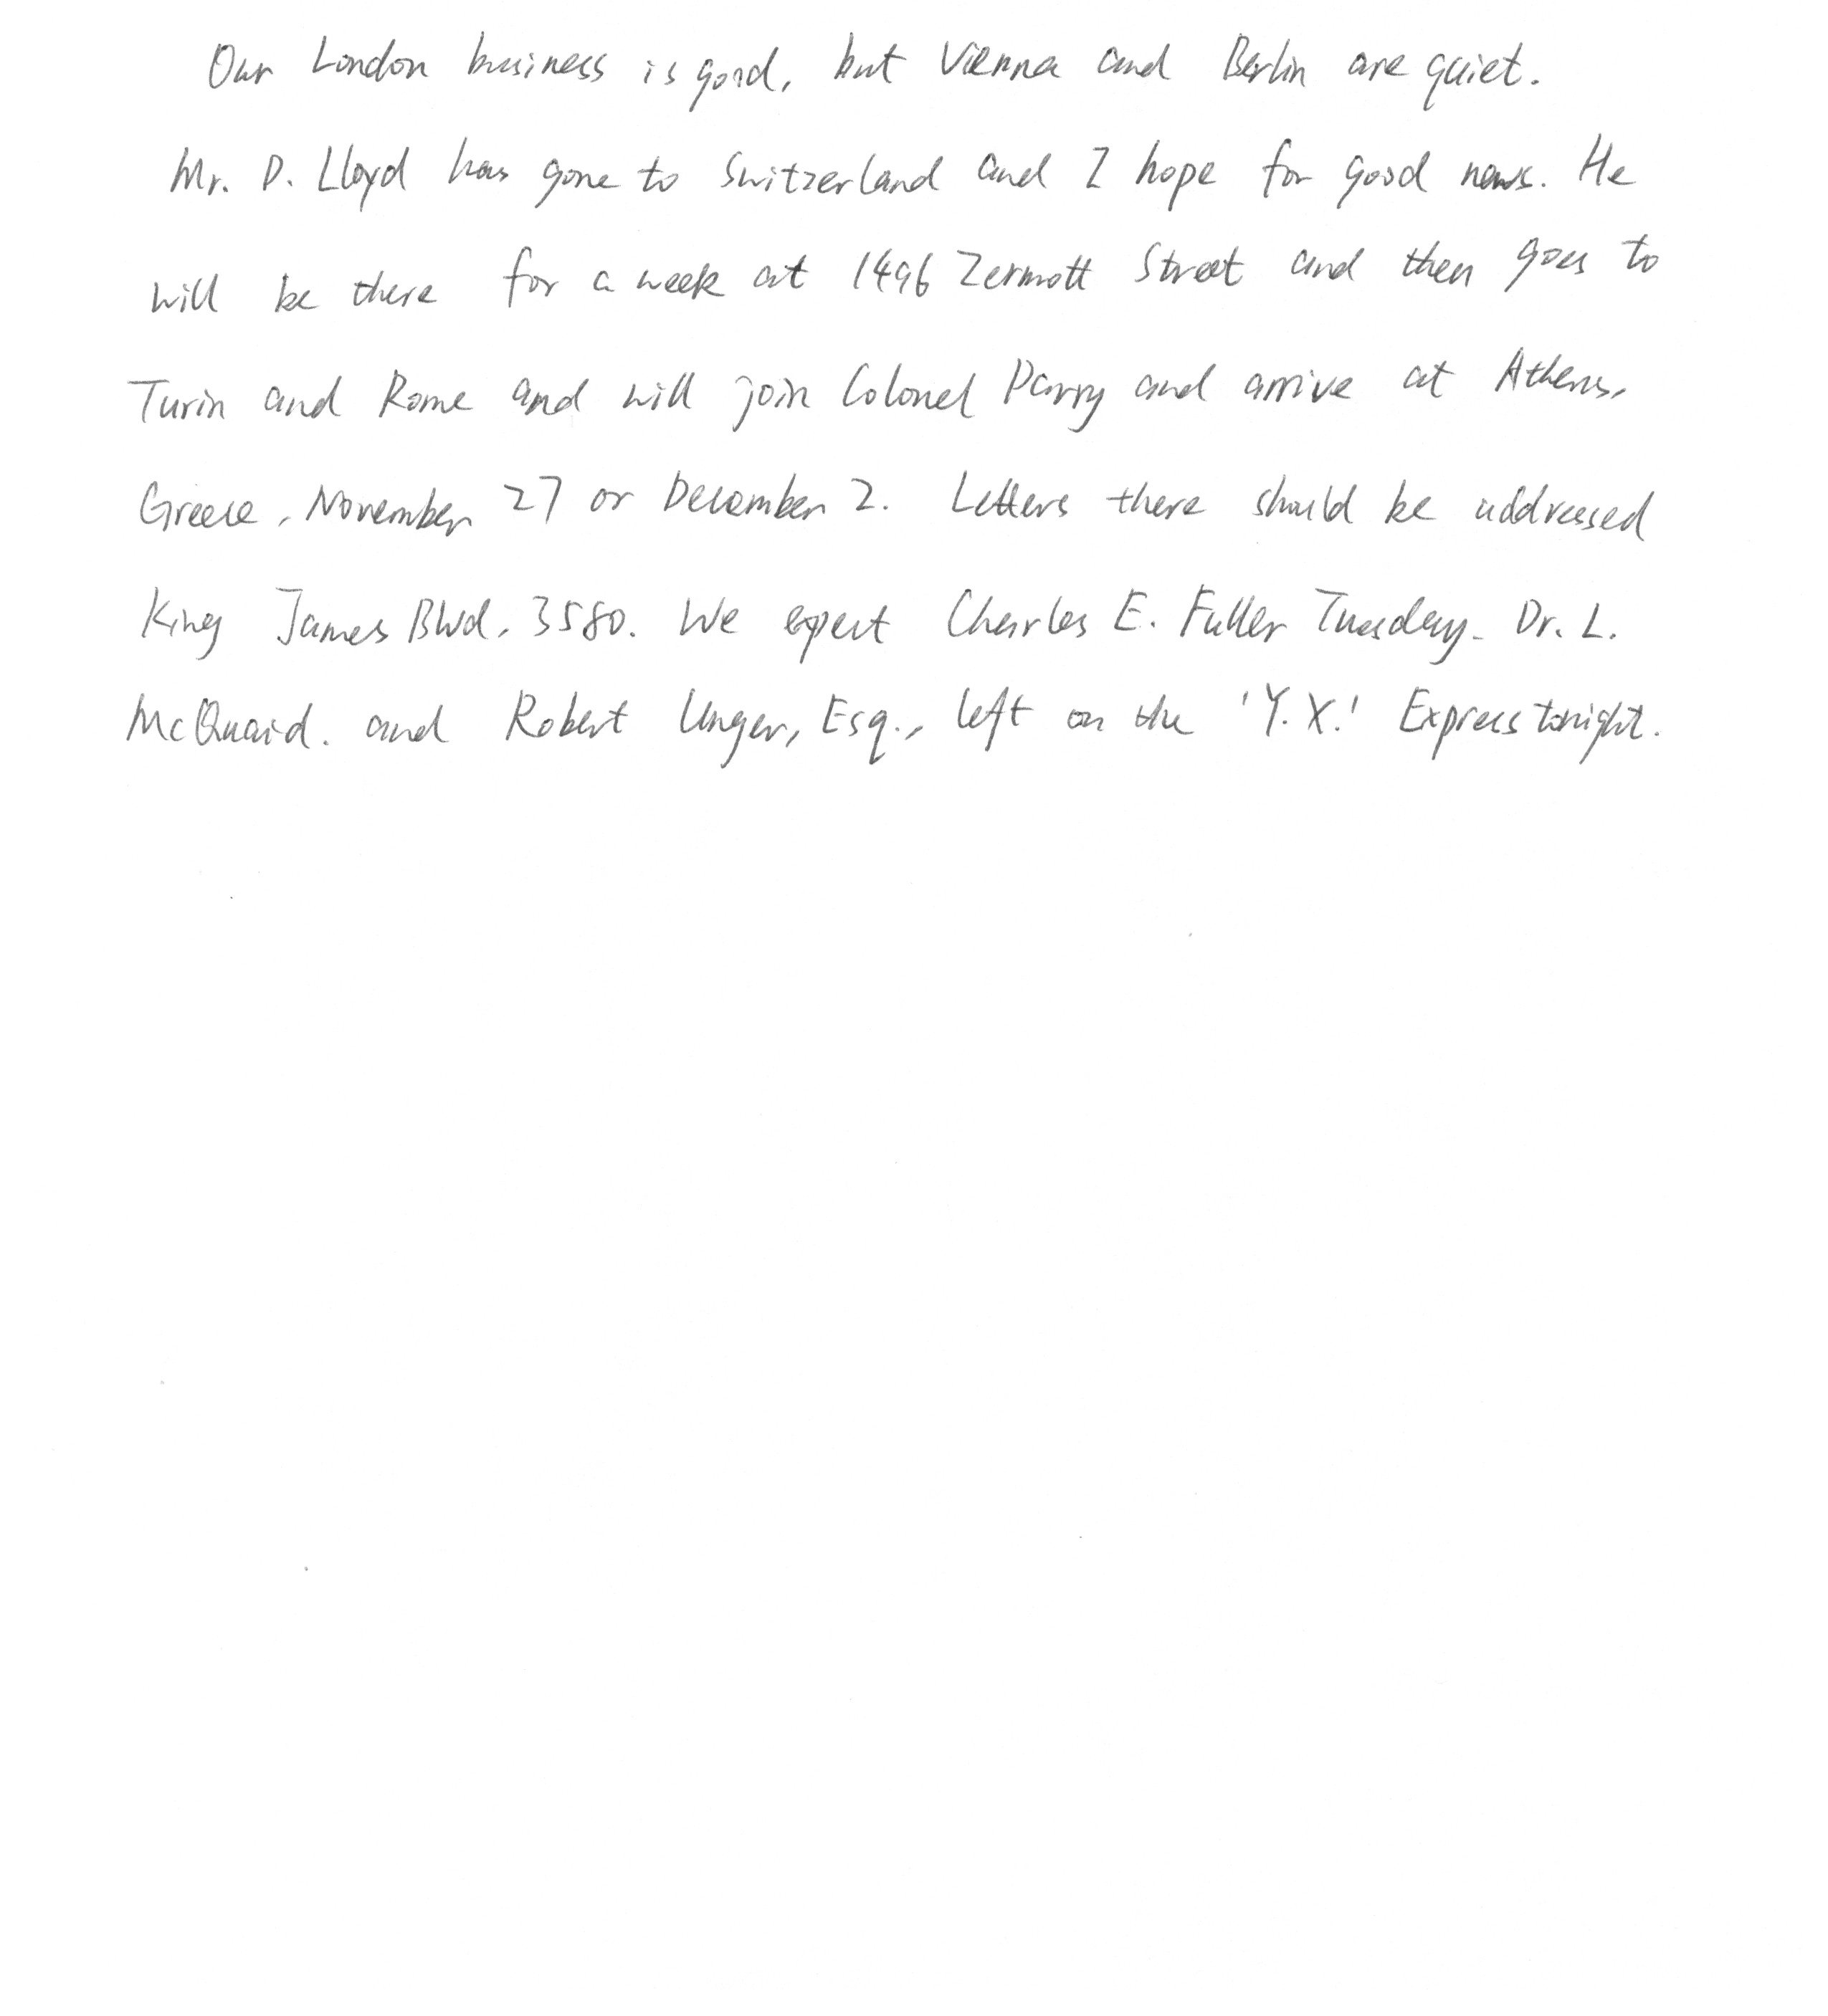 Our London business is good, but Vienna and Berlin are quiet.
Mr. D. Lloyd has gone to Switzerland and I hope for good news. He
will be there for a week at 1496 Zermott Street and then goes to
Turin and Rome and will join Colonel Parry and arrive at Athens,
Greece, November 27 or December 2. Letters there should be addressed
King James Blvd. 3580. We expect Charles E. Fuller Tuesday. Dr. L.
McQuaid. and Robert Unger, Esq., left on the 'Y.X.' Express tonight.